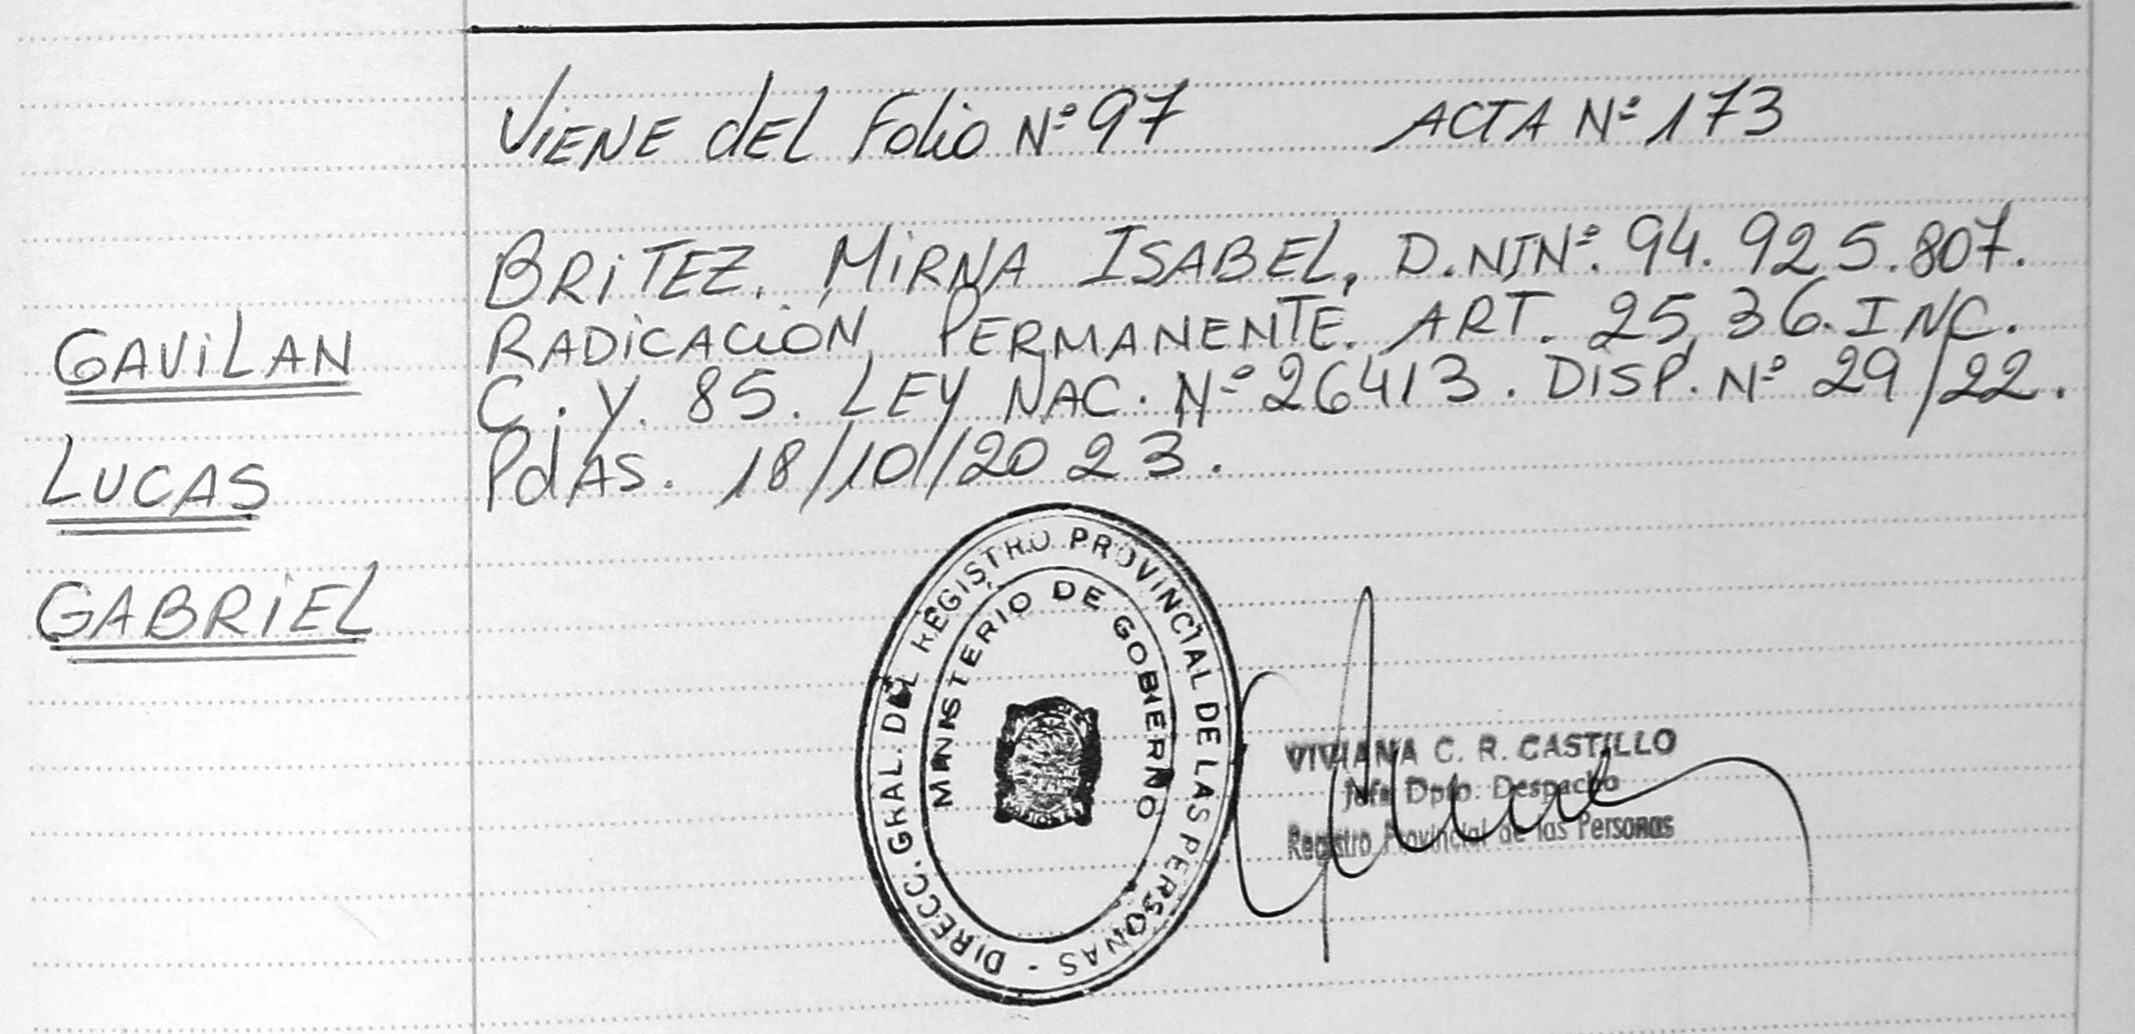 ViENE dEL Folio Nº 97 ACTA Nº 173
BRiTEZ, MiRNA ISABEL, D.NINº. 94.925.807.
RADiCACiÓN PERMANENTE. ART. 25, 36. INC.
C. Y. 85. LEY NAC. Nº 26413. DISP. Nº 29/22.
PdAS. 18/10/2023.
GAViLAN
LUCAS
GABRiEL
DIRECC. GRAL. DEL REGISTRO PROVINCIAL DE LAS PERSONAS -
MINISTERIO DE GOBIERNO
VIVIANA C. R. CASTILLO
Jefa Dpto. Despacho
Registro Provincial de las Personas